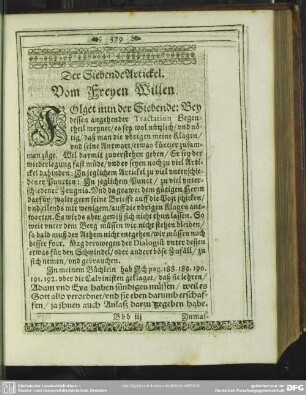 379
Der Siebende Artickel.
Vom Freyen Willen.
FOlget nun der Siebende: Bey
dessen angehender Tractation Gegen-
theil meynet / es sey wol nützlich / vnd nö-
tig / daß man die vbrigen meine Klagen /
vnd seine Antwort / etwas kürtzer zusam-
men zöge. Wil darmit zuverstehen geben / Er sey der
wiederlegung fast müde / vnd es seyen noch zu viel Arti-
ckel dahinden: In jeglichem Artickel zu viel vnterschie-
dener Puncten: In jeglichem Punct / zu viel vnter-
schiedener Zeugnis. Vnd da gra wer dem gütigen Herrn
darfür / wolte gern seine Brieffe auff die Post schicken /
vnd vollends mit wenigem / auff die vbrigen Klagen ant-
worten. Es würde aber gewiß sich nicht thun lassen. So
weit vnter dem Berg müssen wir nicht stehen bleiben /
so bald muß der Athem nicht entgehen / wir müssen noch
besser fort. Mag derowegen der Dialogist vnter dessen
etwas für den Schwindel / oder andere böse Zufäll / zu
sich nemen / vnd gebrauchen.
In meinem Büchlein hab Ich pag. 188. 189. 190.
191. 192. vber die Calvinisten geklaget / daß sie lehren /
Adam vnd Eva haben sündigen müssen / weil es
Gott also verordnet / vnd sie eben darumb erschaf-
fen / ja ihnen auch Anlaß darzu gegeben habe.
Bbb iij